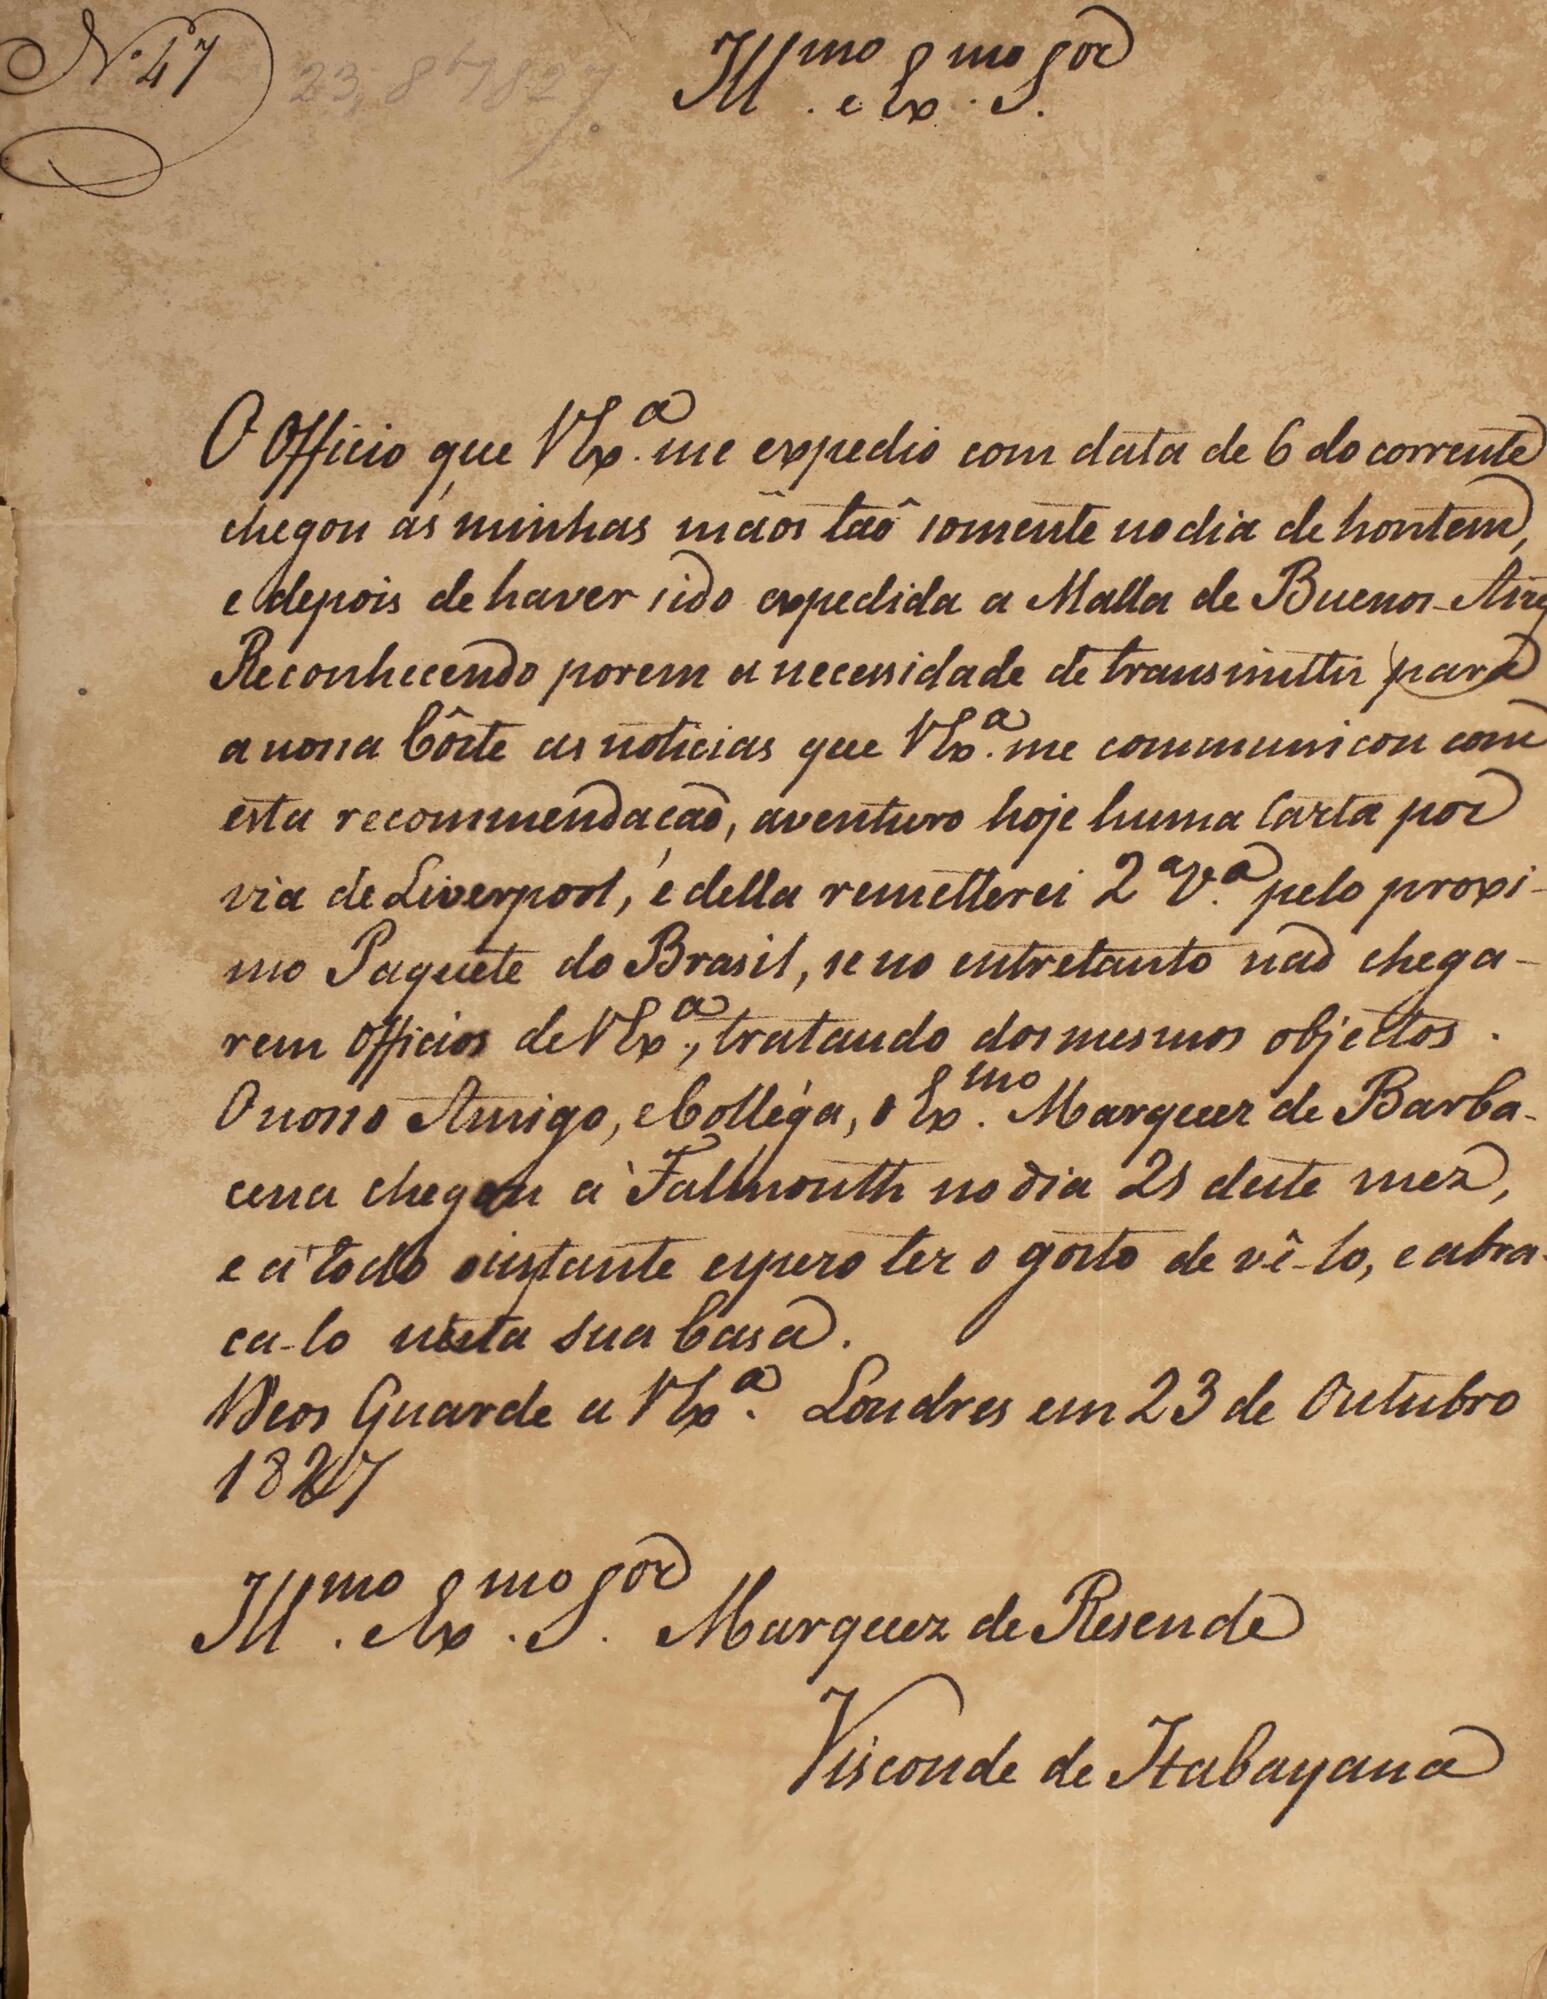 N.º 47
23, 8bro 1827
Ill.mo e Ex.mo S.or
O Officio que V Ex.ª me expedio com data de 6 do corrente
chegou ás minhas mãos taõ somente no dia de hontem,
e depois de haver sido expedida a Malla de Buenos-Aires
Reconhecendo porem a necessidade de transmittir para
a nossa Côrte as noticias que V Ex.ª me communicou com
esta recommendacaõ, aventuro hoje huma Carta por
via de Liverpool, e della remetterei 2ª V.ª pelo proxi-
mo Paquete do Brasil, se no entretanto naõ chega-
rem Officios de V Ex.ª, tratando dos mesmos objectos.
O nosso Amigo, e Colléga, o Ex.mo Marquez de Barba-
cena chegou à Falmouth no dia 21 deste mez,
e a todo o instante espero ter o gosto de vê-lo, e abra-
ca-lo nesta sua Casa.
Deos Guarde a V Ex.ª. Londres em 23 de Outubro
1827
Ill.mo e Ex.mo S.or Marquez de Resende
Visconde de Itabayana